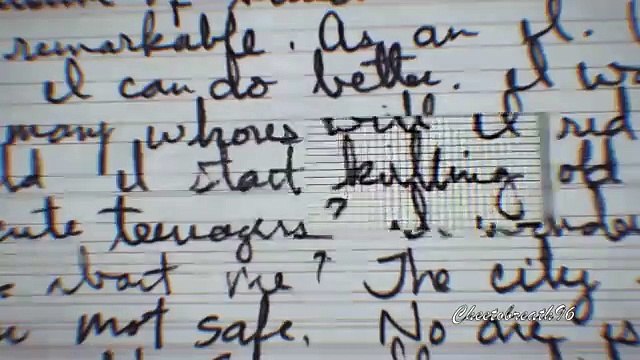 remarkable. As an
I can do better. I
many whores will I rid
I start killing old
cute teenagers? I
about me? The city
not safe. No one is
Cheetobreath96